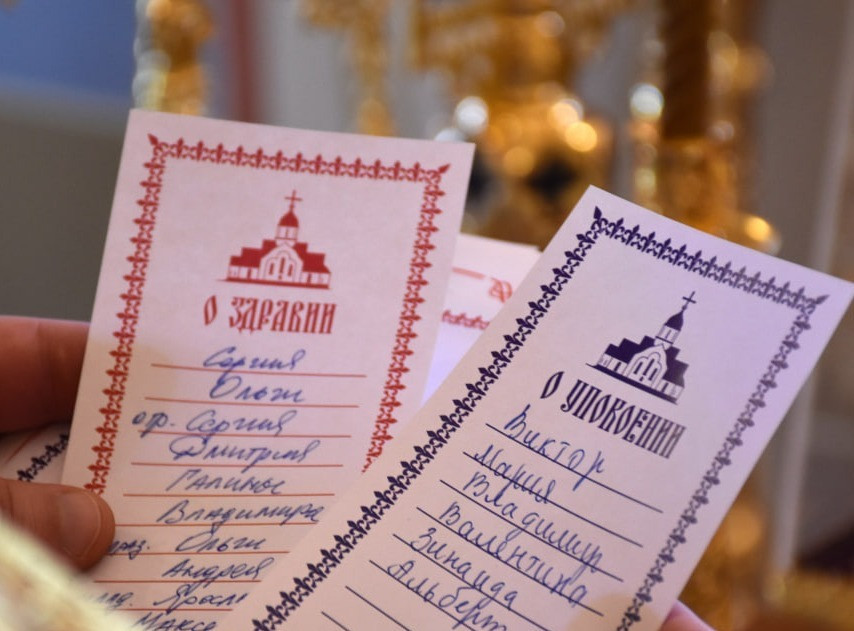 О ЗДРАВИИ
Сергия
Ольги
отр. Сергия
Дмитрия
Галины
Владимира
Ольги
Андрея
О УПОКОЕНИИ
Виктор
Мария
Владимир
Валентина
Зинаида
Альберт